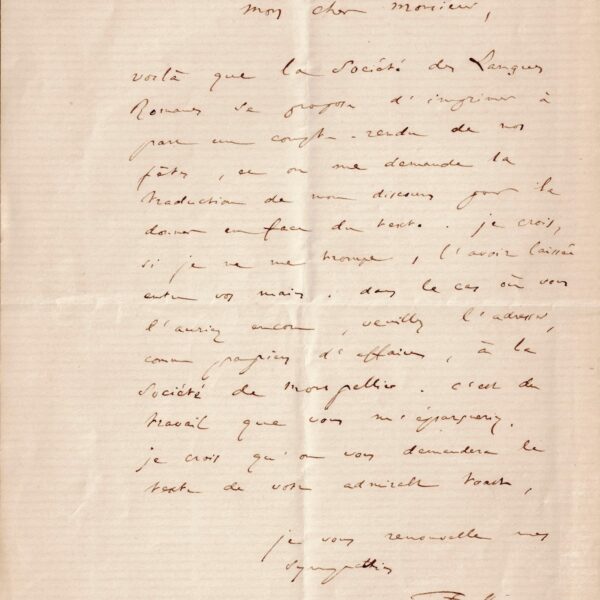 mon cher monsieur,
voilà que la Société des Langues
Romanes se propose d'imprimer à
part un compte-rendu de nos
fêtes, et on me demande la
traduction de mon discours pour la
donner en face du texte. je crois,
si je ne me trompe, l'avoir laissée
entre vos mains. dans le cas où vous
l'auriez encore, veuillez l'adresser,
comme papiers d'affaires, à la
Société de Montpellier. c'est du
travail que vous m'épargnerez.
je crois qu'on vous demandera le
texte de votre admirable toast,
je vous renouvelle mes
sympathies